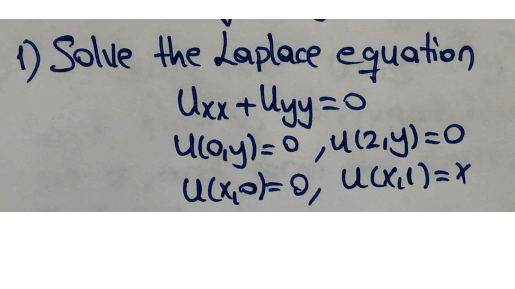 1) Solve the Laplace equation
Uxx + Uyy = 0
U(0,y) = 0 , U(2,y) = 0
U(x,0) = 0, U(x,1) = x